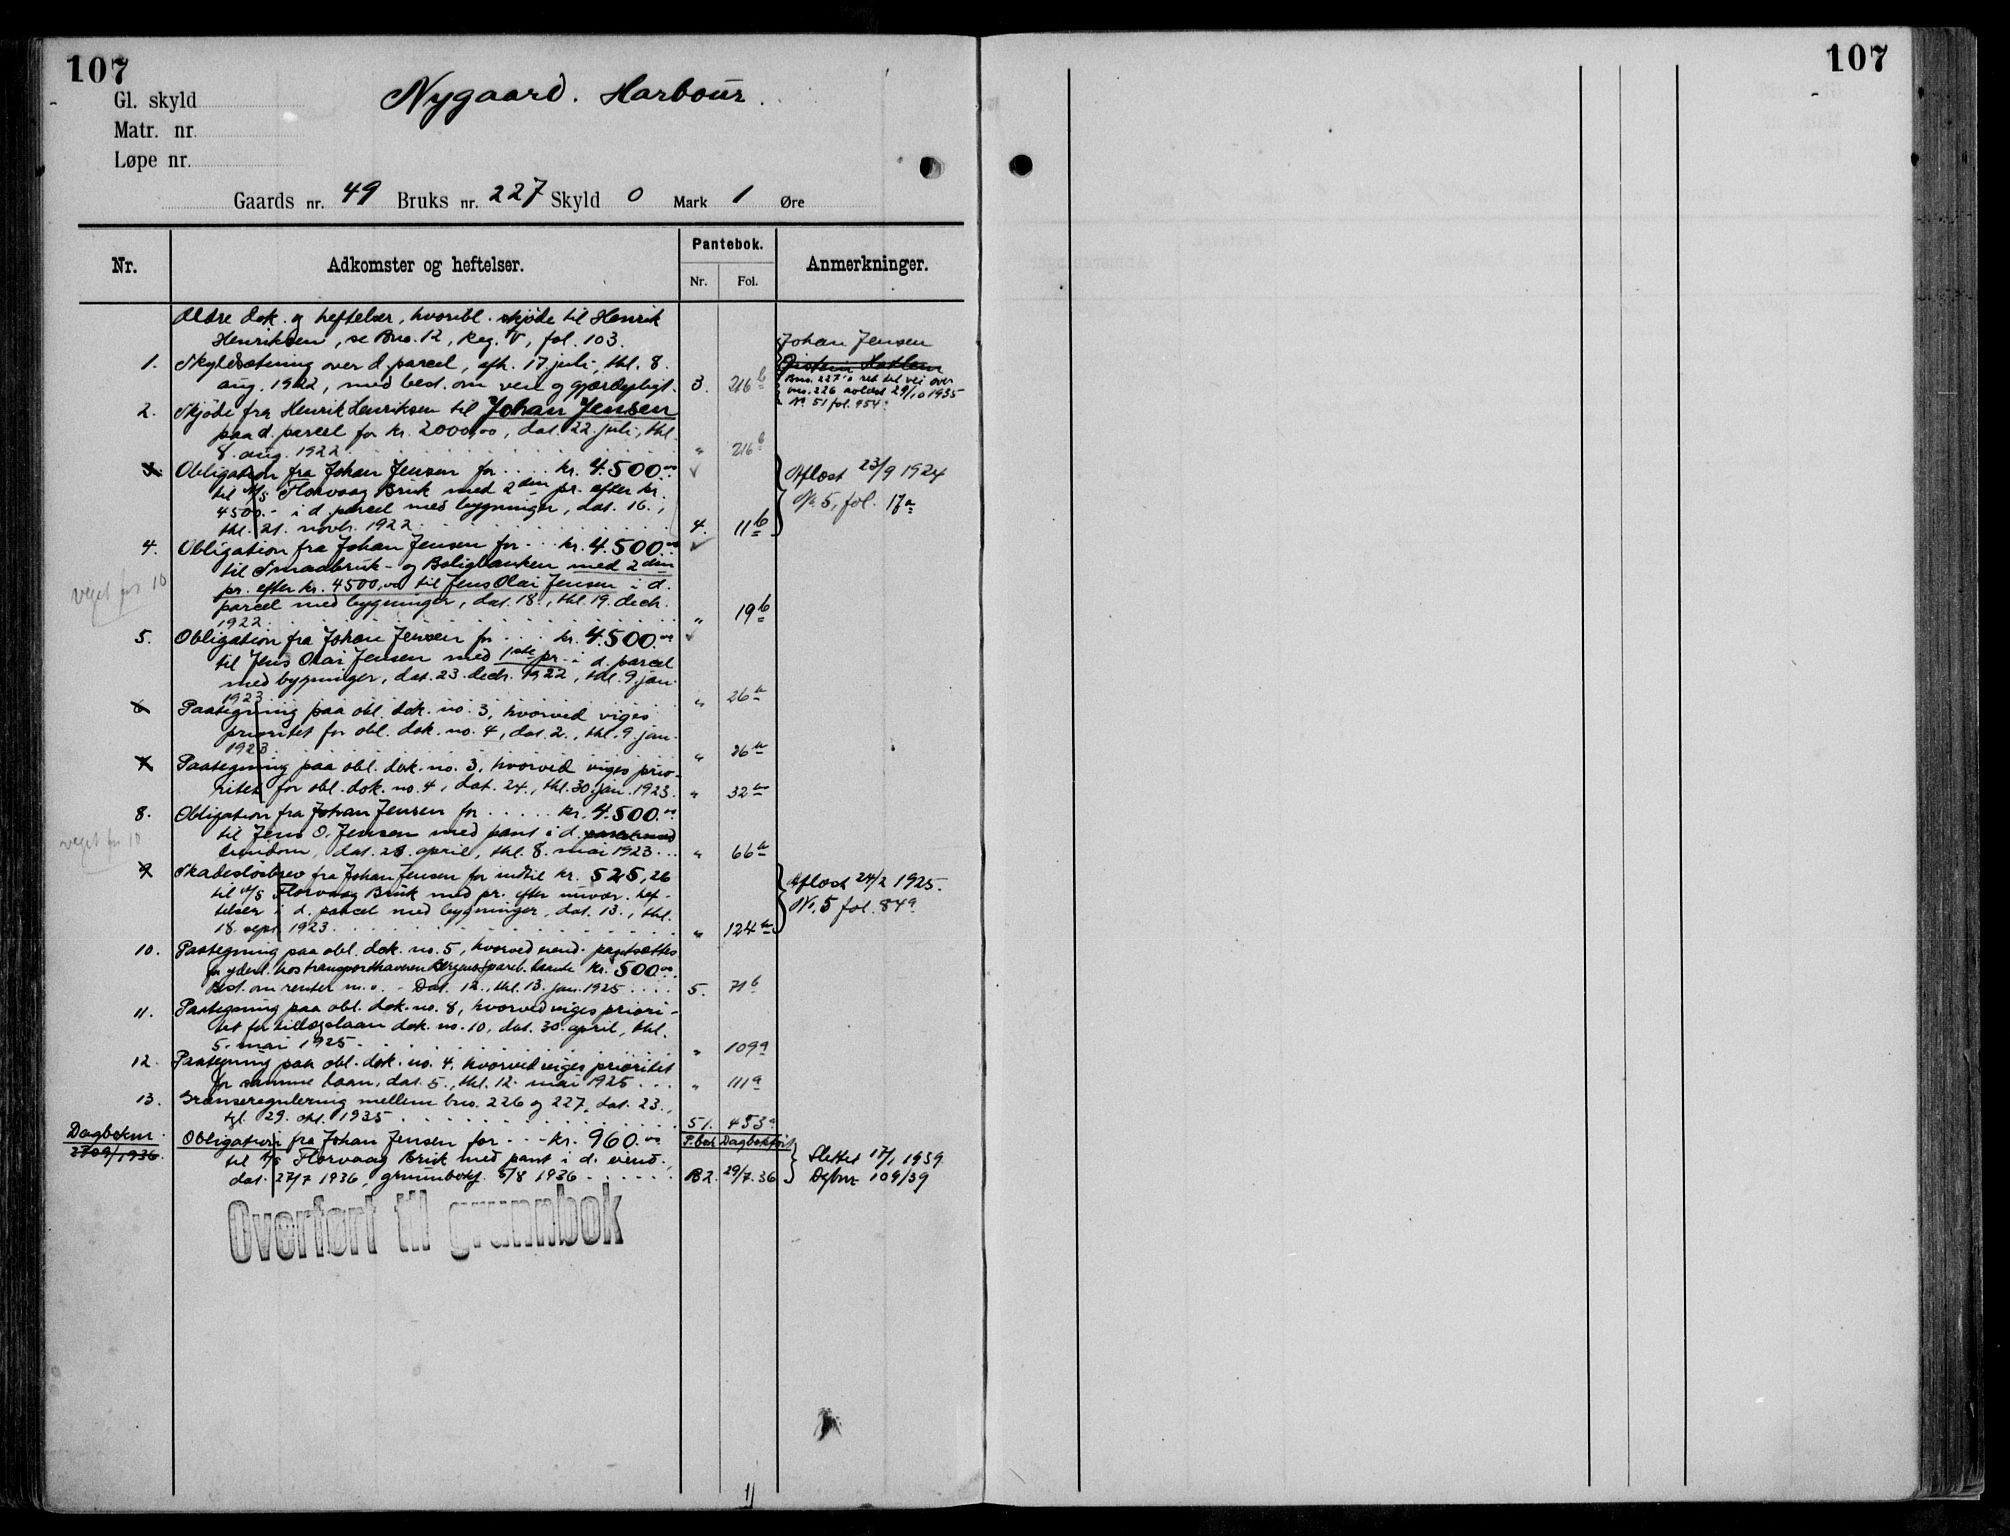 107
Nygaard. Harbour.
Gl. skyld
Matr. nr.
Løpe nr.
Gaards nr. 49 Bruks nr. 227 Skyld 0 Mark 1 Øre
Nr. Adkomster og heftelser. Pantebok. Nr. Fol. Anmerkninger.
Ældre dok. og heftelser, hvoribl. skjøde til Henrik
Henriksen, se Bno. 12, Reg. V, fol. 103.
Johan Jensen
1. Skyldsætning over d. parcel, afh. 17. juli, thl. 8.
aug. 1922, med best. om vei og gjærdepligt. 3. 216 b
Bno. 227's ret til vei over
bno. 226 avlæst 29/10 1935
No 51 fol. 954.
2. Skjøde fra Henrik Henriksen til Johan Jensen
paa d. parcel for kr. 2000,00, dat. 22. juli, thl.
8. aug. 1922 . . . " 216 b
3. Obligation fra Johan Jensen for . . . . kr. 4.500.00
til A/S Florvaag Bruk med 2den pr. efter kr.
4500.- i d. parcel med bygninger, dat. 16.,
thl. 21. novbr. 1922 . . . 4. 11 b
Aflæst 23/9 1924
No. 5, fol. 17 a
4. Obligation fra Johan Jensen for . . . kr. 4.500.00
til Smaabruk- og Boligbanken med 2den
pr. efter kr. 4500,00 til Jens Olai Jensen i d.
parcel med bygninger, dat. 18., thl. 19. decbr.
1922 . . . " 19 b
veget for 10
5. Obligation fra Johan Jensen for . . . kr. 4.500.00
til Jens Olai Jensen med 1ste pr. i d. parcel
med bygninger, dat. 23. decbr. 1922, thl. 9. jan.
1923 . . . " 26 a
6. Paategning paa obl. dok. no. 3, hvorved viges
prioritet for obl. dok. no. 4, dat. 2., thl. 9. jan.
1923 . . . " 26 a
7. Paategning paa obl. dok. no. 3, hvorved viges prio-
ritet for obl. dok. no. 4, dat. 24., thl. 30. jan. 1923. " 32 a
8. Obligation fra Johan Jensen for . . . . . kr. 4.500.00
til Jens O. Jensen med pant i d. parcel med
eiendom, dat. 28. april, thl. 8. mai 1923 . . . " 66 a
veget for 10
9. Skadesløsbrev fra Johan Jensen for indtil kr. 525,26
til A/S Florvaag Bruk med pr. efter nuvær. hef-
telser i d. parcel med bygninger, dat. 13., thl.
18. sept. 1923 . . . " 124 a
Aflæst 24/2 1925.
No. 5 fol. 84 a
10. Paategning paa obl. dok. no. 5, hvorved eiend. pantsættes
for yderl. hos transporthaveren Bergens Spareb. laante kr. 500.00
Best. om renter m.v. - Dat. 12., thl. 13. jan. 1925 . . . . 5. 71 b
11. Paategning paa obl. dok. no. 8, hvorved viges priori-
tet for tillægslaan dok. no. 10, dat. 30. april, thl.
5. mai 1925 . . . " 109 a
12. Paategning paa obl. dok. no. 4, hvorved viges prioritet
for samme laan, dat. 5., thl. 12. mai 1925 . . . " 111 a
13. Grænseregulering mellem bno. 226 og 227, dat. 23.,
tgl. 29. okt. 1935 . . . 51. 453 a
Dagboknr.
2709/1936.
P.bok Dagbokført
Obligation fra Johan Jensen for . . . kr. 960.00
til A/S Florvaag Bruk med pant i d. eiend.,
dat. 27/7 1936, grunnbokf. 5/8 1936 . . . . . . B2. 29/7.36
Slettet 17/1 1939
Dgbnr 109/39
Overført til grunnbok
107